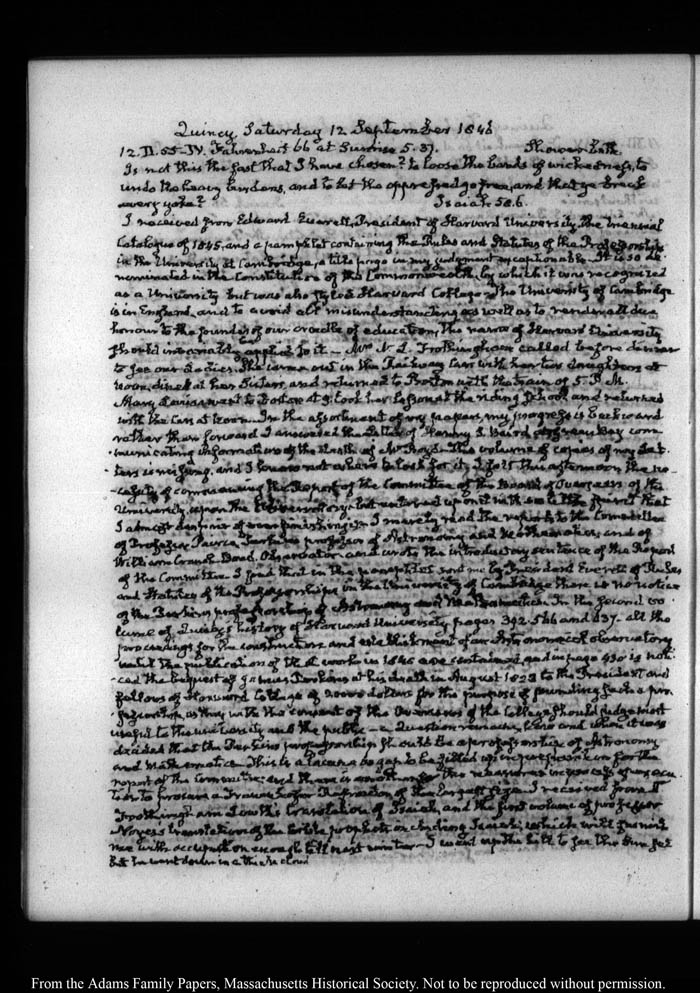 Quincy, Saturday 12 September 1846
12. IV. 55-IV. Fahrenheit 66 at Sunrise 5.37. Shower bath
Is not this the fast that I have chosen? to loose the bands of wickedness, to
undo the heavy burdens, and to let the oppressed go free, and that ye break
every yoke? Isaiah 58.6.
I received from Edward Everett, President of Harvard University, the triennial
Catalogue of 1845, and a pamphlet containing the Rules and Statutes of the Professorships
in the University at Cambridge, a title page in my judgment exceptionable. It is so de-
nominated in the Constitution of the Commonwealth, by which it was recognized
as a University but was also styled Harvard College. The University of Cambridge
is in England, and to avoid all misunderstanding as well as to render all due
honour to the founder of our cradle of education, the name of Harvard University
should invariably applied to it — Mrs N. L. Frothingham called before dinner
to see our Ladies. She came out in the Railway Cars with her two daughters at
noon, dined at her Sisters, and returned to Boston with the train of 5. P.M.
Mary Louisa went to Boston at 9. took her lesson at the riding School and returned
with the Cars at Noon. In the assortment of my papers, my progress is backward
rather than forward. I answered the Letter of Henry S. Baird of Green Bay com-
municating information of the death of Mr The volume of copies of my Let-
ters is missing, and I know not where to look for it. I felt this afternoon the ne-
cessity of commencing the Report of the Committee of the Board of Overseers of the
University, upon the Observatory: but entered upon it with so little spirit that
I almost despair of ever finishing it. I merely read the reports to the Committee
of Professor Peirce, Perkins professor of Astronomy and Mathematics, and of
William Cranch Bond, Observator and wrote the introductory sentence of the Report
of the Committee. I find that in the pamphlet sent me by President Everett of Rules
and Statutes of the Professorships in the University of Cambridge there is no notice
of the Perkins professorship of Astronomy and Mathematics. In the second vo-
lume of Quincy's history of Harvard University, pages 392. 566 and all the
proceedings for the construction and establishment of an Astronomical observatory
until the publication of the work in 1840 are contained, and in page 430 is noti-
ced the bequest of James Perkins at his death in August 1822 to the President and
fellows of Harvard College of 20000 dollars for the purpose of founding such a pro-
fessorship, as they with the consent of the Overseers of the College should judge most
useful to the University and the public — a Question remains, how and when it was
decided that the Perkins professorship should be a professorship of Astronomy
and Mathematics. This is a lacuna to be filled up in preparation for the
report of the Committee: and there is another in the
to procure a Fraunhofer Refractor of the largest size. I received from
Frothingham Lowth's translation of Isaiah, and the first volume of professor
Noyes's translation of the Hebrew prophets including Isaiah; which will furnish
me with occupation enough till next winter — I went up the hill to see the Sun set
But he went down in a thick cloud
From the Adams Family Papers, Massachusetts Historical Society. Not to be reproduced without permission.